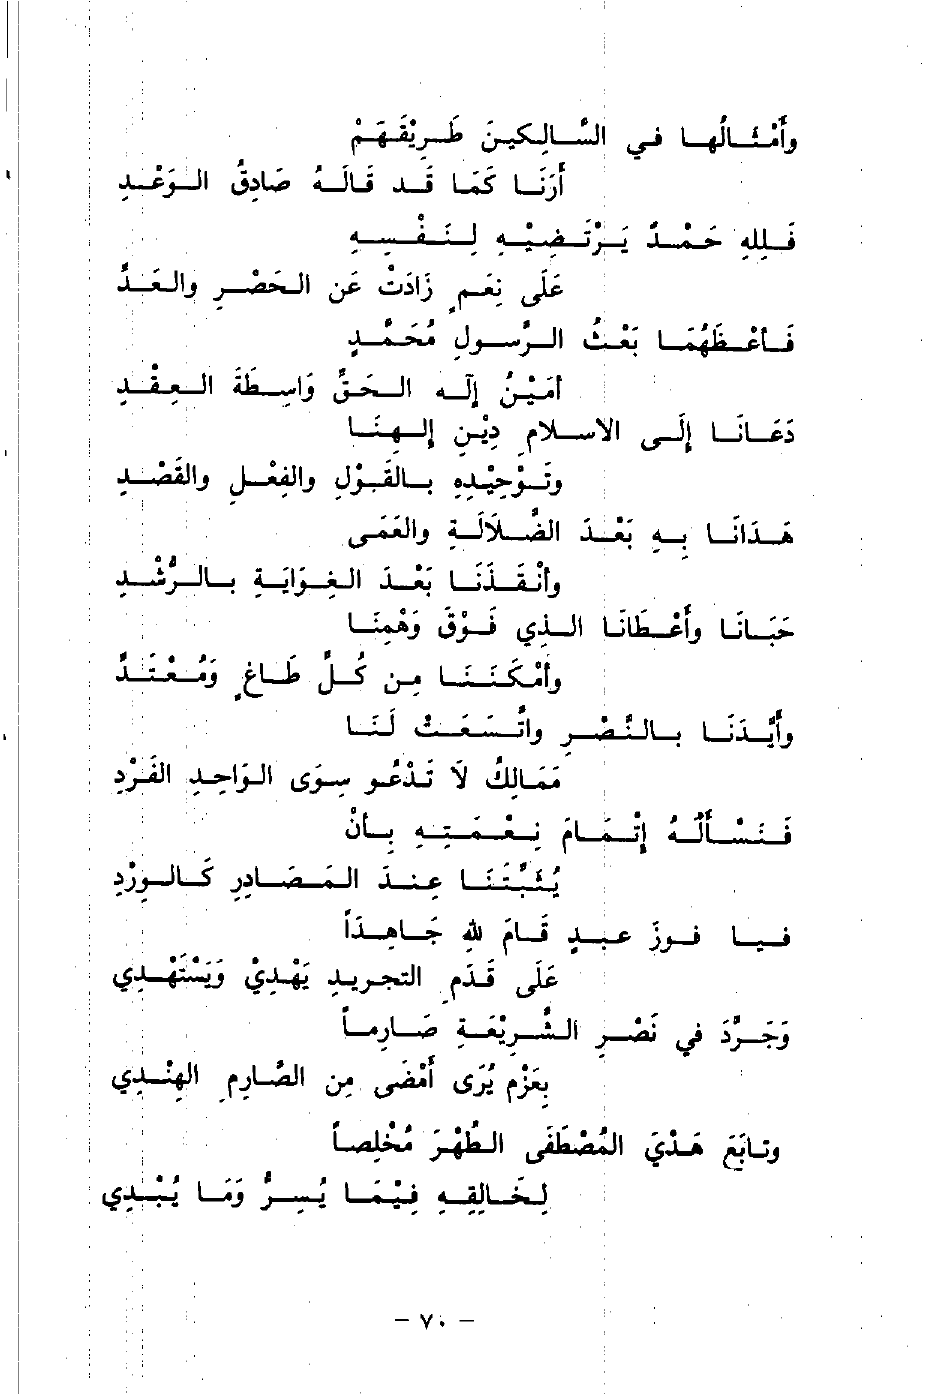 وأَمْثَالُها في السَّالِكينَ طَرِيْقَهَمْ
أَرَنَا كَمَا قَد قَالَهُ صَادِقُ الوَعْدِ
فَلِلهِ حَمْدٌ يَرْتَضِيْهِ لِنَفْسِهِ
عَلَى نِعَمٍ زَادَتْ عَن الحَصْرِ والعَدِّ
فَأعْظَهُمَا بَعْثُ الرَّسولِ مُحَمَّدٍ
أمَيْنُ إلَه الحَقِّ وَاسِطَةَ العِقْدِ
دَعَانَا إلَى الاسلامِ دِيْنِ إلهِنَا
وتَوْحِيْدِهِ بالقَوْلِ والفِعْلِ والقَصْدِ
هَدَانَا بِهِ بَعْدَ الضَّلَالَةِ والعَمَى
وأنْقَذَنَا بَعْدَ الغِوَايَةِ بالرُّشْدِ
حَبَانَا وأَعْطَانَا الذي فَوْقَ وَهْمِنَا
وأَمْكَنَنَا مِن كُلِّ طَاغٍ وَمُعْتَدِّ
وأَيَّدَنَا بالنَّصْرِ واتَّسَعَتْ لَنَا
مَمَالِكُ لاَ تَدْعُو سِوَى الوَاحِدِ الفَرْدِ
فَنَسْأَلُهُ إتْمَامَ نِعْمَتِهِ بِأنْ
يُثَبِّتَنَا عِندَ المَصَادِرِ كَالوِرْدِ
فيا فوزَ عبدٍ قَامَ للهِ جَاهِدَاً
عَلَى قَدَمِ التجريدِ يَهْدِيْ وَيَسْتَهْدِي
وَجَرَّدَ في نَصْرِ الشَّرِيْعَةِ صَارِماً
بِعَزْم يُرَى أَمْضَى مِن الصَّارِمِ الهِنْدِي
وتابَعَ هَدْيَ المُصْطَفَى الطُهْرَ مُخْلِصاً
لِخَالِقِهِ فِيْمَا يُسِرُّ وَمَا يُبْدِي
- ٧٠ -